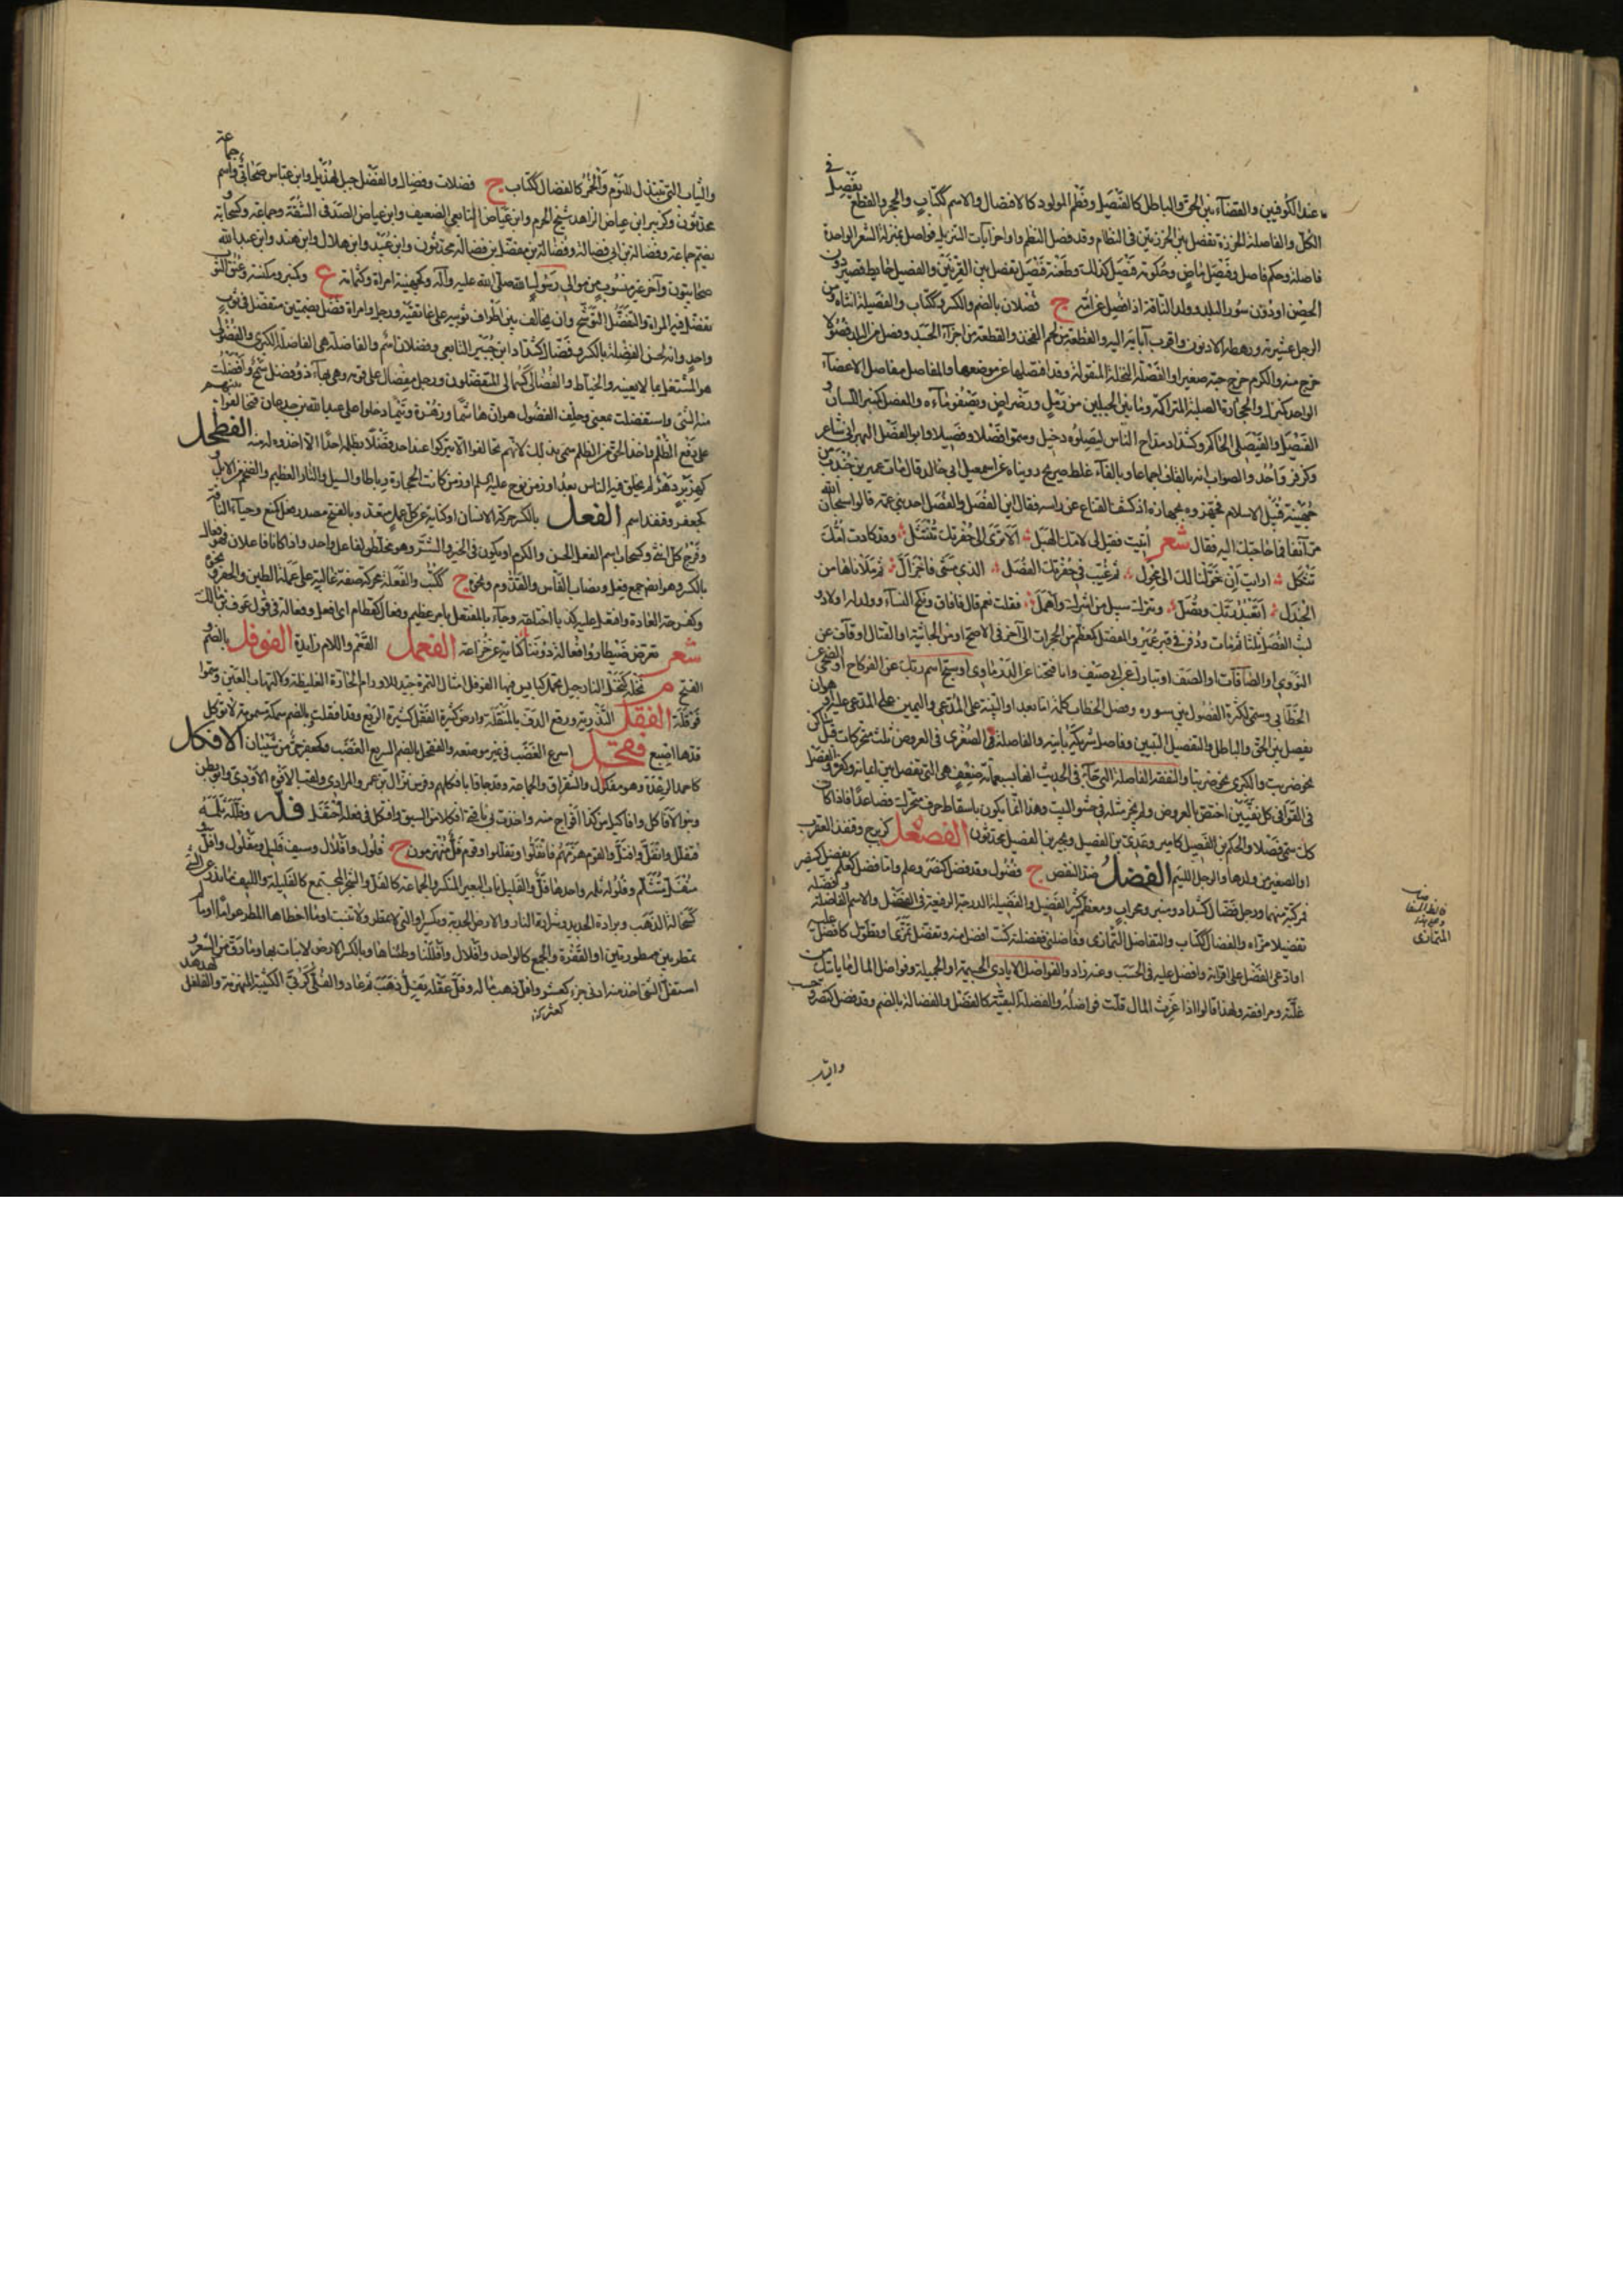 عند الكوفيين والقضآء بين الحق والباطل كالفيصل وفطم المولود كالافتصال والاسم ككتاب والحجر والقطع
الكل والفاصلة الخرزة تفصل بين الخرزتين في النظام وقد فصل النظم واواخر آيات التنزيل فواصل بمنزلة الشعر الواحدة
فاصلة وحكم فاصل وفيصل ماض وحكومة فيصل كذلك وطعنة فيصل تفصل بين القرنين والفصيل حايط قصير دون
الحصن او دون سور البلد وولد الناقة اذا فصل عن امه ج فصلان بالضم والكسر وككتاب والفصيلة انثاه ومن
الرجل عشيرته ورهطه الادنون واقرب آبايه اليه والقطعة من لحم الفخذ والقطعة من اجزآء الجسد وفصل من البلد فصولا
خرج منه والكرم خرج حبه صغيرا والفصلة النخلة المنقولة وقد افتصلها عن موضعها والمفاصل مفاصل الاعضآء
الواحد كمنزل والحجارة الصلبة المتراكمة وما بين الجبلين من رمل ورضراض ويصفو مآءه وكمنبر اللسان
الفيصل والفيصلي الحاكم وكشداد مداح الناس ليصلوه دخيل وسموا فصلا وفصيلا وابو الفصل البهراني شاعر
وكزفر واحد والصواب انه بالقاف اجماعا وبالفآء غلط صريح روينا عن اسمعيل ابن ابي خالد قال مات عمير بن جندب من
جهينة قبيل الاسلام فجهزوه بجهازه اذ كشف القناع عن راسه فقال اين الفصل والفصل احد بني عمه قالوا سبحان الله
مر آنفا فما حاجتك اليه فقال شعر اتيت فقيل لي لامك الهبل الا ترى الى حفرتك تنتثل وقد كادت امك
تثكل ارايت ان حولناك الى محول ثم غيب في حفرتك الفصل الذي مشى فاخزأل ثم ملاناها من
الجندل اتعبد ربك وتصل وتترك سبيل من اشرك واضل فقلت نعم قال فافاق ونكح النسآء وولد له اولاد و
لبث الفصل ثلثا ثم مات ودفن في قبر عمير والمفصل كمعظم من الحجرات الى آخره في الاصح او من الجاثية او القتال او قاف عن
النووي او الصافات او الصف او تبارك عن ابن ابي الصيف او انا فتحنا عن الدزماوي او سبح اسم ربك عن الفركاح او الضحى عن
الخطابي وسمي لكثرة الفصول بين سوره وفصل الخطاب كلمة اما بعد او البينة على المدعي واليمين على المدعى عليه او هو ان
يفصل بين الحق والباطل والتفصيل التبيين وفاصل شريكه باينه والفاصلة الصغرى في العروض ثلث متحركات قبل ساكن
نحو ضربت والكبرى نحو ضربتا والنفقة الفاصلة التي جآء في الحديث انها بسبعمائة ضعف هي التي تفصل بين ايمانه وكفره والفصل
في القوافي كل تغيير اختص بالعروض ولم يجز مثله في حشو البيت وهذا انما يكون باسقاط حرف متحرك فصاعدا فاذا كان
كذلك سمي فصلا والحكم بن الفصيل كامير وعدي بن الفصيل وبحير بن الفصيل محدثون الفصعل كزبرج وقنفذ العقرب
او الصغير من ولدها والرجل اللئيم الفضل ضد النقص ج فضول وقد فضل كنصر وعلم واما فضل كعلم يفضل كينصر
فمركبة منهما ورجل فضال كشداد ومنبر ومحراب ومعظم كثير الفضل والفضيلة الدرجة الرفيعة في الفضل والاسم الفاضلة وفضله
تفضيلا مزاه والفضال ككتاب والتفاضل التمازي وفاضلني ففضلته كنت افضل منه وتفضل تمزى وتطول كافضل عليه
او ادعى الفضل على اقرانه وافضل عليه في الحسب وعنه زاد والفواضل الايادي الجسيمة او الجميلة وفواضل المال ما ياتيك من
غلته ومرافقه ولهذا قالوا اذا عزب المال قلت فواضله والفضلة البقية كالفضل والفضالة بالضم وقد فضل كنصر وحسب
التمازي
والثياب التي تبتذل للنوم والخمر كالفضال ككتاب ج فضلات وفضال والفضل جبل لهذيل وابن عباس صحابي واسم جماعة
محدثون وكزبير ابن عياض الزاهد شيخ الحرم وابن عياض التابعي الضعيف وابن عياض الصدفي الثقة وجماعة وكسحابة و
يضم جماعة وفضالة بن ابي فضالة وفضالة بن مفضل بن فضالة محدثون وابن عبيد وابن هلال وابن هند وابن عبد الله
صحابيون وآخر غير منسوب من موالي رسول الله صلى الله عليه وآله وكجهينة امراة وكثمامة ع وكمنبر ومكنسة وعنق الثوب
تتفضل فيه المراة والتفضل التوشح وان يخالف بين اطراف ثوبيه على عاتقيه ورجل وامراة فضل بضمتين متفضل في ثوب
واحد وانه لحسن الفضلة بالكسر وفضال كشداد ابن جبير التابعي وفضلان اسم والفاضلة هي الفاضلة الكبرى والفضولي
هو المشتغل بما لا يعنيه والخياط والفضالى كسمانى المتفضلون ورجل مفضال على قومه وهي بهآء ذو فضل سمح وافضلت
منه الشئ واستفضلت بمعنى وحلف الفضول هو ان هاشما وزهرة وتيما دخلوا على عبد الله بن جدعان فتحالفوا بينهم
على دفع الظلم واخذ الحق من الظالم سمي بذلك لانهم تحالفوا الا يتركوا عند احد فضلا يظلمه احدا الا اخذوه له منه الفطحل
كهزبر دهر لم يخلق فيه الناس بعد او زمن نوح عليه السلم او زمن كانت الحجارة فيه رطابا والسيل والتار العظيم والضخم من الابل و
كجعفر وقنفذ اسم الفعل بالكسر حركة الانسان او كناية عن كل عمل متعد وبالفتح مصدر فعل كمنع وحيآء الناقة
وفرج كل انثى وكسحاب اسم الفعل الحسن والكرم او يكون في الخير والشر وهو مخلص لفاعل واحد واذا كان من فاعلين فهو فعال
بالكسر وهو ايضا جمع فعل ونصاب الفأس والقدوم ونحوه ج ككتب والفعلة محركة صفة غالبة على عملة الطين والحفر ونحوه
وكفرحة العادة وافتعل عليه كذبا اختلقه وجآء بالمفتعل بامر عظيم وفعال كقطام اي افعل وفعالة في قول عوف بن مالك
شعر تعرض ضيطارو فعالة دوننا كناية عن خزاعة الفعمل الفعم واللام زايدة الفوفل بالضم و
الفتح م نخلة كنخل النارجيل تحمل كبايس فيها الفوفل امثال التمر جيد للاورام الحارة الغليظة ولالتهاب العين وسموا
فوفلة الفقل التذرية ورفع الدق بالمفقلة وارض كثيرة الفقل كثيرة الريع وقد افقلت وبالضم سمكة سمومة لا توكل
قدها اصبع فقحل اسرع الغضب في غير موضعه والفقحل بالضم السريع الغضب وكجعفر حي من شيبان الافكل
كاحمد الرعدة وهو مفكول والشقراق والجماعة وقد جاؤا بافكلهم وفرس نزال بن عمرو المرادي ولقب الافوه الاودي وابو بطن
وبنو الافاكل وافاكيل من كذا افواج منه واخذت بي ناقتي افكلا من السبق وافتكل في فعله احتفل فله وفلله ثلمه
فتفلل وانفل وافتل والقوم هزمهم فانفلوا وتفللوا وقوم فل منهزمون ج فلول وافلال وسيف فليل ومفلول وافل
منفل متثلم وفلوله ثلمه واحدها فل والفليل ناب البعير المنكسر والجماعة كالفل والشعر المجتمع كالفليلة والليف وما ندر عن الشئ
كسحالة الذهب وبرادة الحديد وشرارة النار والارض الجدبة ويكسر او التي تمطر ولا تنبت او ما اخطاها المطر اعواما او ما لم
تمطر بين ممطورتين او القفرة والجمع كالواحد وافلال وافللنا وطئناها وبالكسر الارض لا نبات بها وما رق من الشعر و
استفل الشئ اخذ منه ادنى جزء كعشره وافل ذهب ماله وفل عقله يفل ذهب ثم عاد والفلى كربى الكتيبة المنهزمة والفلفل كهدهد